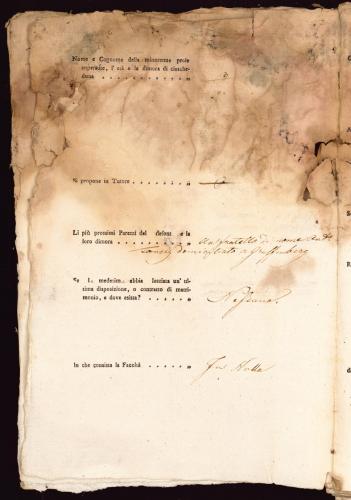 Nome e Cognome della minorenne prole
superstite, l' età e la dimora di ciascheduna . . . . . . . . . . . „
Si propone in Tutore . . . . . . . „
Li più prossimi Parenti del defont e la
loro dimora . . . . . . . . „ Un fratello di nome
domiciliato a
Se l medesim abbia lasciata un' ultima
disposizione, o contratto di matrimonio,
e dove esista? . . . . . . „ Nessuna.
In che consista la Facoltà . . . . . „ In Nulla